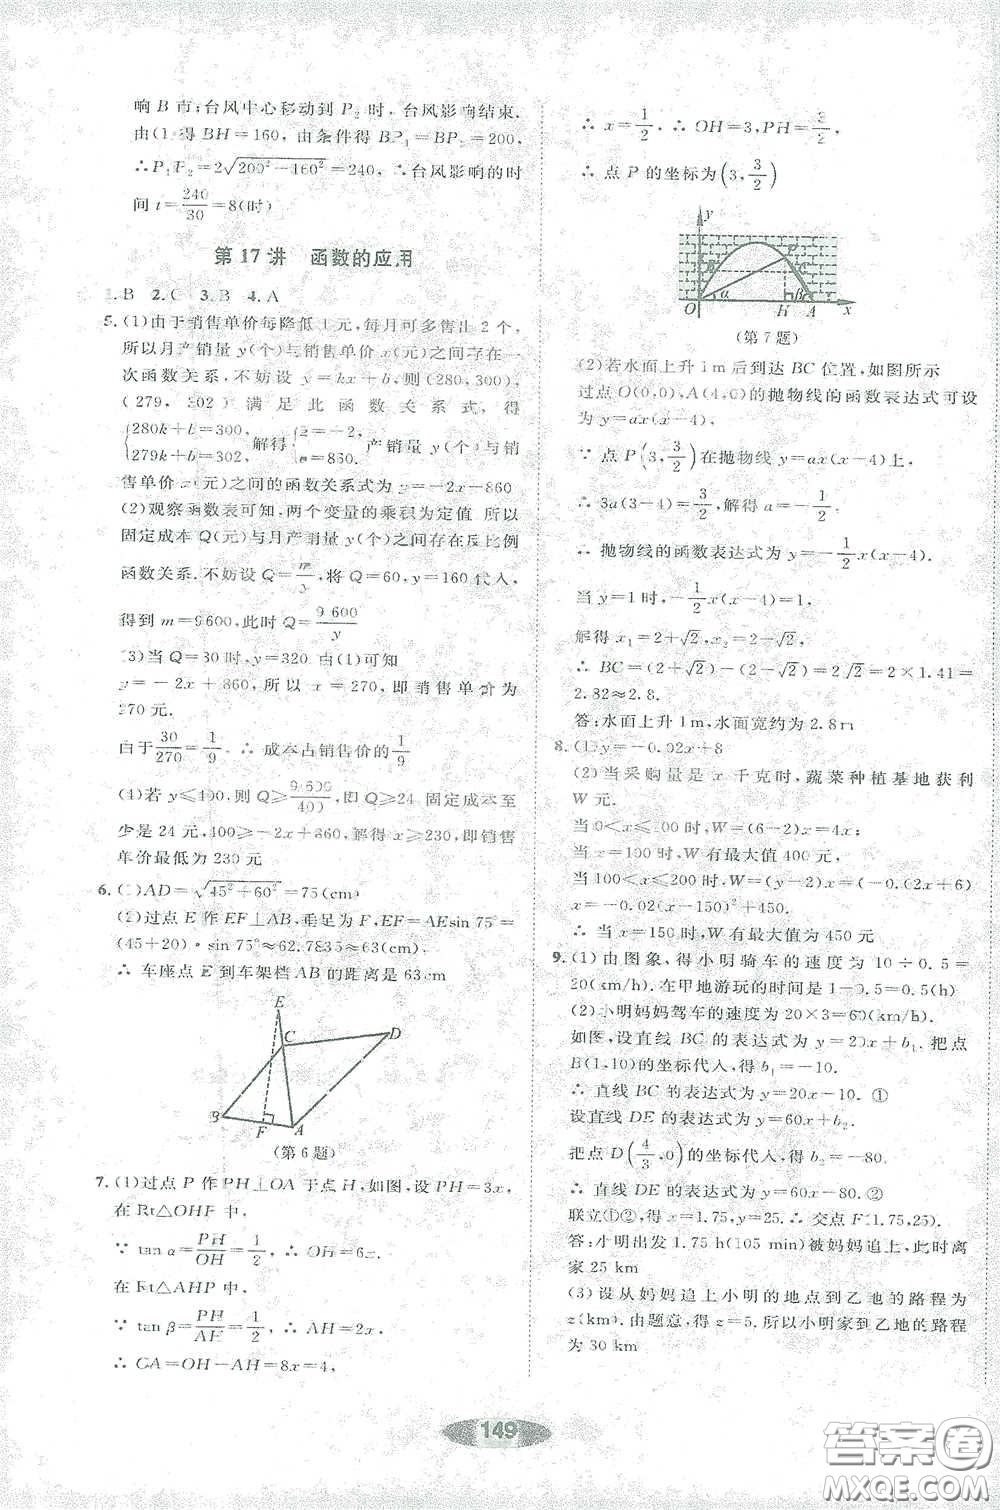 响 B 市;台风中心移动到 P₂ 时,台风影响结束.
由(1)得 BH=160,由条件得 BP₁=BP₂=200,
∴P₁P₂=2√(200²-160²)=240,∴台风影响的时
间 t=240/30=8(时)
第 17 讲 函数的应用
1.B 2.C 3.B 4.A
5.(1)由于销售单价每降低 1 元,每月可多售出 2 个,
所以月产销量 y(个)与销售单价 x(元)之间存在一
次函数关系,不妨设 y=kx+b,则(280,300),
(279,302)满足此函数关系式,得
{280k+b=300, 279k+b=302, 解得{ =-2, =860, 产销量 y(个)与销
售单价 x(元)之间的函数关系式为 y=-2x+860
(2)观察函数表可知,两个变量的乘积为定值 所以
固定成本 Q(元)与月产销量 y(个)之间存在反比例
函数关系.不妨设 Q=m/y,将 Q=60,y=160 代入,
得到 m=9600,此时 Q=9 600/y
(3)当 Q=30 时,y=320 由(1)可知
y=-2x+860,所以 x=270,即销售单价为
270 元.
由于30/270=1/9 ∴ 成本占销售价的1/9
(4)若 y≤400,则 Q≥9 600/400,即 Q≥24 固定成本至
少是 24 元,400≥-2x+860,解得 x≥230,即销售
单价最低为 230 元
6.(1)AD=√(45²+60²)=75(cm)
(2)过点 E 作 EF⊥AB,垂足为 F,EF=AEsin 75°=
(45+20)·sin 75°≈62.7835≈63(cm).
∴ 车座点 E 到车架档 AB 的距离是 63cm
E
C
D
B
F
A
(第 6 题)
7.(1)过点 P 作 PH⊥OA 于点 H,如图,设 PH=3x,
在 Rt△OHP 中,
∵ tan α=PH/OH=1/2,∴ OH=6x.
在 Rt△AHP 中,
∵ tan β=PH/AH=
∴ OA=OH+AH=8x=4,
∴ x=1/2 ∴ OH=3,PH=3/2,
∴ 点 P 的坐标为(3,3/2)
y
B
P
α
β
O
H
A
x
(第 7 题)
(2)若水面上升 1 m 后到达 BC 位置,如图所示
过点 O(0,0),A(4,0)的抛物线的函数表达式可设
为 y=ax(x-4),
∵ 点 P(3,3/2)在抛物线 y=ax(x-4)上,
∴ 3a(3-4)=3/2,解得 a=-1/2
∴ 抛物线的函数表达式为 y=-1/2x(x-4).
当 y=1 时,-1/2x(x-4)=1,
解得 x₁=2+√2,x₂=2-√2,
∴ BC=(2+√2)-(2-√2)=2√2=2×1.41=
2.82≈2.8.
答:水面上升 1 m,水面宽约为 2.8m
8.(1)y=-0.02x+8
(2)当采购量是 x 千克时,蔬菜种植基地获利
W 元.
当 0<x≤100 时,W=(6-2)x=4x;
当 x=100 时,W 有最大值 400 元.
当 100<x≤200 时,W=(y-2)x=(-0.02x+6)
x=-0.02(x-150)²+450.
∴ 当 x=150 时,W 有最大值为 450 元
9.(1)由图象,得小明骑车的速度为 10÷0.5=
20(km/h).在甲地游玩的时间是 1-0.5=0.5(h)
(2)小明妈妈驾车的速度为 20×3=60(km/h).
如图,设直线 BC 的表达式为 y=20x+b₁.把点
B(1,10)的坐标代入,得 b₁=-10.
∴ 直线 BC 的表达式为 y=20x-10. ①
设直线 DE 的表达式为 y=60x+b₂.
把点 D(4/3,0)的坐标代入,得 b₂=-80.
∴ 直线 DE 的表达式为 y=60x-80. ②
联立①②,得 x=1.75,y=25.∴ 交点 F(1.75,25).
答:小明出发 1.75 h(105 min)被妈妈追上,此时离
家 25 km
(3)设从妈妈追上小明的地点到乙地的路程为
z(km).由题意,得 z=5.所以小明家到乙地的路程
为 30 km
149
答案圈
MXQE.COM